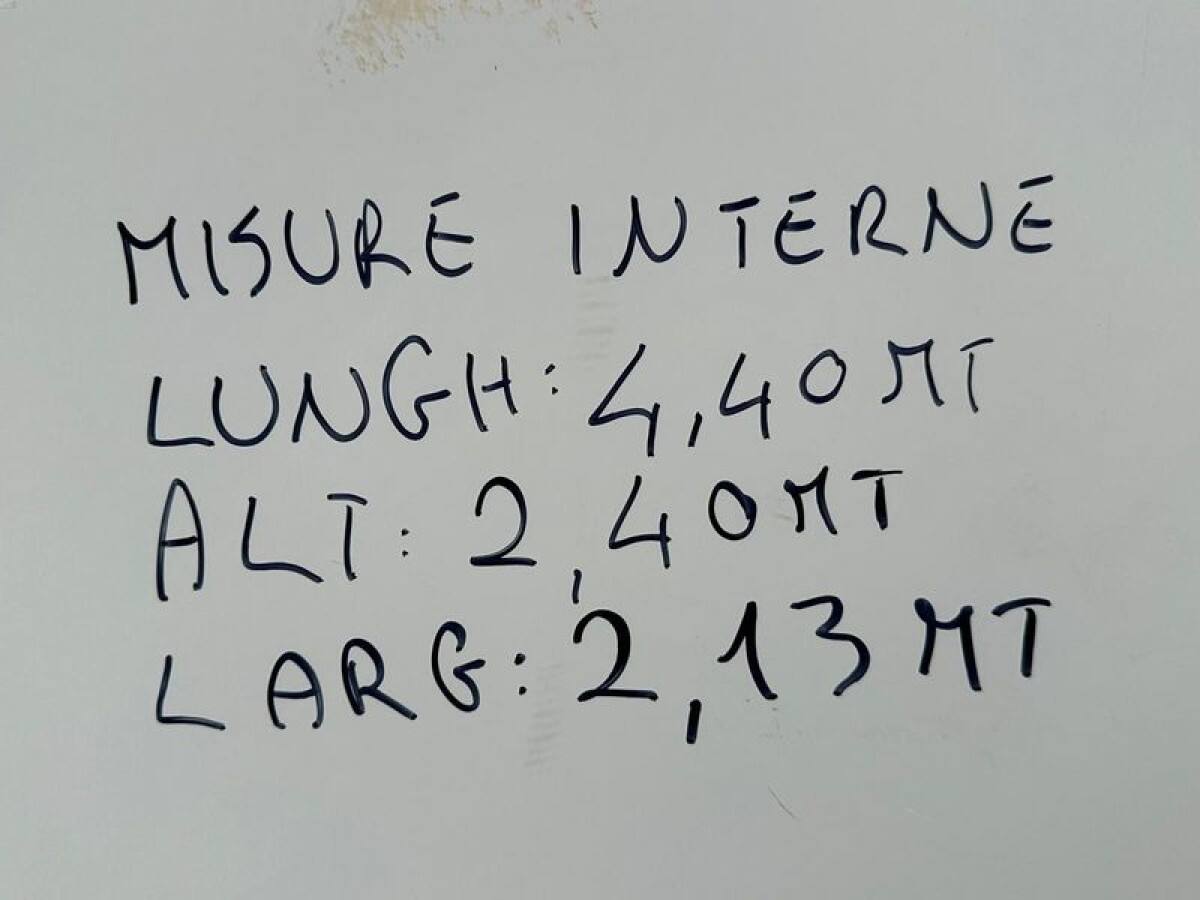 MISURE INTERNE
LUNGH: 4,40 MT
ALT: 2,40 MT
LARG: 2,13 MT